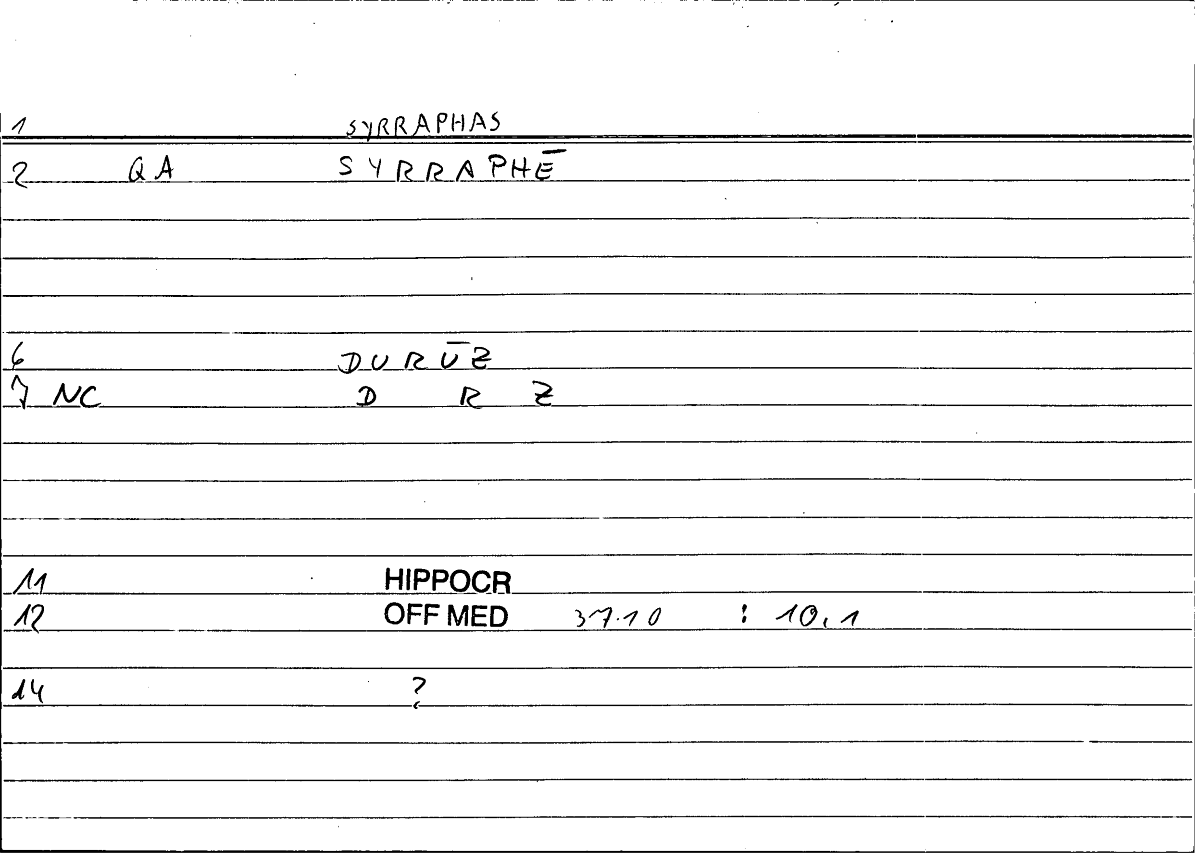 1 SYRRAPHAS
2 QA SYRRAPHĒ
6 DURŪZ
7 NC D R Z
11 HIPPOCR
12 OFF MED 37.10 : 10,1
14 ?